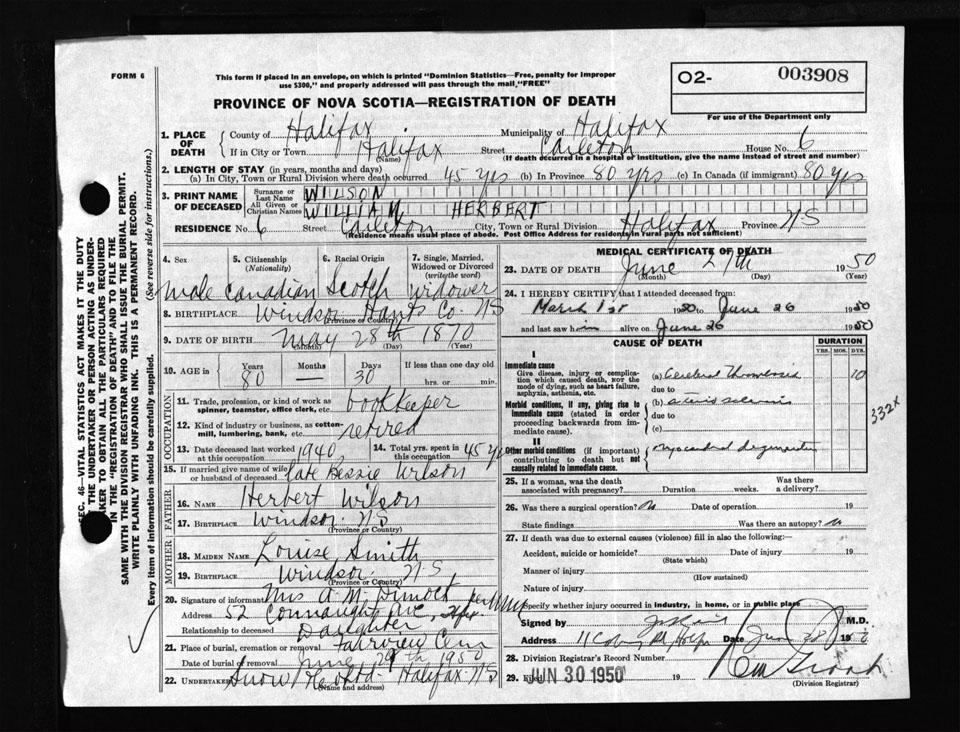 FORM 6
This form if placed in an envelope, on which is printed "Dominion Statistics—Free, penalty for improper
use $300," and properly addressed will pass through the mail, "FREE"
O2- 003908
For use of the Department only
PROVINCE OF NOVA SCOTIA—REGISTRATION OF DEATH
SEC. 46—VITAL STATISTICS ACT MAKES IT THE DUTY
OF THE UNDERTAKER OR PERSON ACTING AS UNDER-
TAKER TO OBTAIN ALL THE PARTICULARS REQUIRED
IN THE "REGISTRATION OF DEATH" AND TO FILE THE
SAME WITH THE DIVISION REGISTRAR WHO SHALL ISSUE THE BURIAL PERMIT.
WRITE PLAINLY WITH UNFADING INK. THIS IS A PERMANENT RECORD.
Every item of information should be carefully supplied. (See reverse side for instructions.)
1. PLACE OF DEATH County of Halifax Municipality of Halifax
If in City or Town Halifax (Name) Street Carleton House No. 6
(If death occurred in a hospital or institution, give the name instead of street and number)
2. LENGTH OF STAY (in years, months and days)
(a) In City, Town or Rural Division where death occurred 45 yrs (b) In Province 80 yrs (c) In Canada (if immigrant) 80 yrs
3. PRINT NAME OF DECEASED Surname or Last Name WILSON
All Given or Christian Names WILLIAM HERBERT
RESIDENCE No. 6 Street Carleton City, Town or Rural Division Halifax Province N.S
(Residence means usual place of abode. Post Office Address for residents in rural parts not sufficient)
4. Sex 5. Citizenship (Nationality) 6. Racial Origin 7. Single, Married, Widowed or Divorced (write the word)
male Canadian Scotch Widower
8. BIRTHPLACE Windsor Hants Co. N.S
(Province or Country)
9. DATE OF BIRTH May 28th 1870
(Month) (Day) (Year)
10. AGE in Years Months Days If less than one day
80 — 30 hrs. or min.
OCCUPATION
11. Trade, profession, or kind of work as spinner, teamster, office clerk, etc. bookkeeper
12. Kind of industry or business, as cotton-mill, lumbering, bank, etc. retired
13. Date deceased last worked at this occupation 1940 14. Total yrs. spent in this occupation 45 yrs
15. If married give name of wife or husband of deceased late Bessie Wilson
FATHER
16. NAME Herbert Wilson
17. BIRTHPLACE Windsor N.S
(Province or Country)
MOTHER
18. MAIDEN NAME Louise Smith
19. BIRTHPLACE Windsor N.S
(Province or Country)
20. Signature of informant Mrs A. M. Dimock
Address 52 Connaught Ave, Hfx
Relationship to deceased Daughter
21. Place of burial, cremation or removal Fairview Cem
Date of burial or removal June 29th 1950
22. Undertaker Snow Halifax N.S
(Name and address)
MEDICAL CERTIFICATE OF DEATH
23. DATE OF DEATH June 27th 1950
(Month) (Day) (Year)
24. I HEREBY CERTIFY that I attended deceased from:
March 1st 1950 to June 26 1950
and last saw him alive on June 26 1950
CAUSE OF DEATH DURATION
YRS. MOS. DYS.
I
Immediate cause
Give disease, injury or complication which caused death, NOT the mode of dying, such as heart failure, asphyxia, asthenia, etc.
(a) Cerebral Thrombosis 10
due to
Morbid conditions, if any, giving rise to immediate cause (stated in order proceeding backwards from immediate cause).
(b) arterio sclerosis
due to
(c)
332X
II
Other morbid conditions (if important) contributing to death but not causally related to immediate cause.
myocardial degeneration
25. If a woman, was the death associated with pregnancy? Duration weeks. Was there a delivery?
26. Was there a surgical operation? No Date of operation 19
State findings Was there an autopsy? No
27. If death was due to external causes (violence) fill in also the following:
Accident, suicide or homicide? Date of injury 19
(State which)
Manner of injury
(How sustained)
Nature of injury
Specify whether injury occurred in industry, in home, or in public place
Signed by M.D.
Address Date 1950
28. Division Registrar's Record Number
29. Filed JUN 30 1950 19
(Division Registrar)